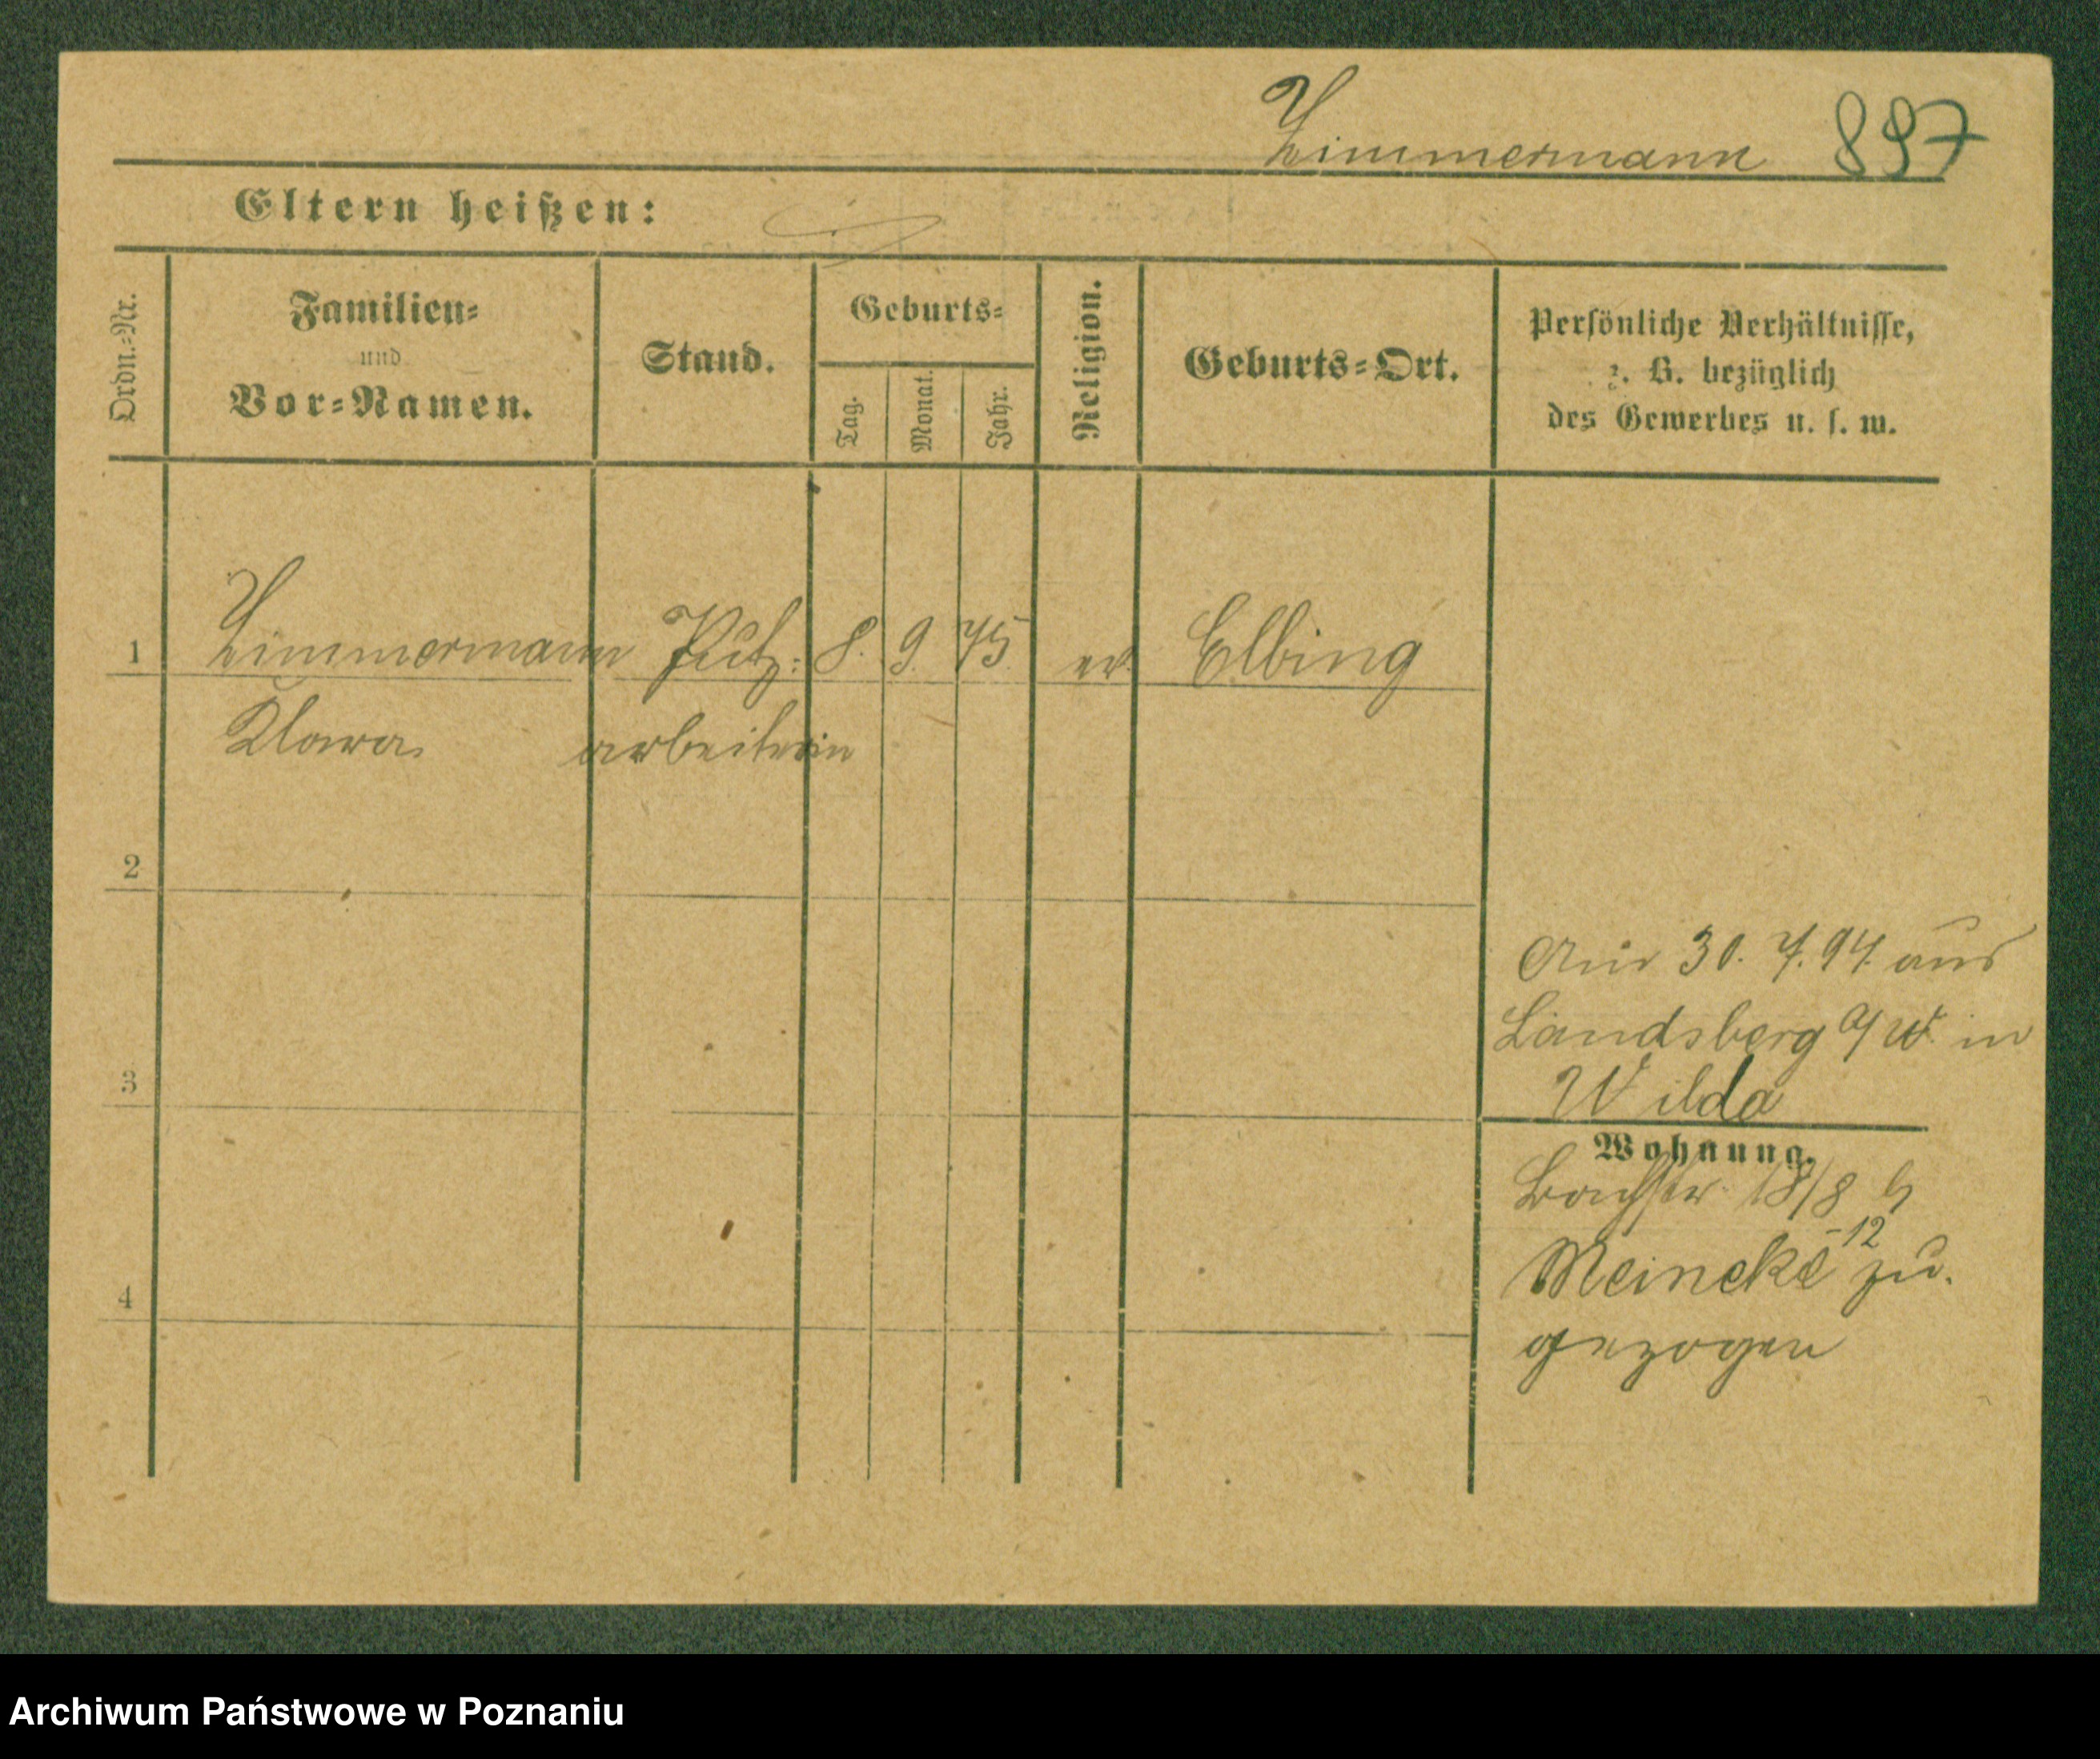 Zimmermann 897
Eltern heißen:
Ordn.-Nr.
Familien-
und
Vor-Namen.
Stand.
Geburts-
Tag.
Monat.
Jahr.
Religion.
Geburts-Ort.
Persönliche Verhältnisse,
z. B. bezüglich
des Gewerbes u. s. w.
1 Zimmermann Putz- 8. 9. 75 ev. Elbing
Klara arbeiterin
2
3
4
30. 7. 94. aus
Landsberg a/W. in
Wilda
Wohnung.
18/8 b
Meineke -12 zu-
gezogen
Archiwum Państwowe w Poznaniu